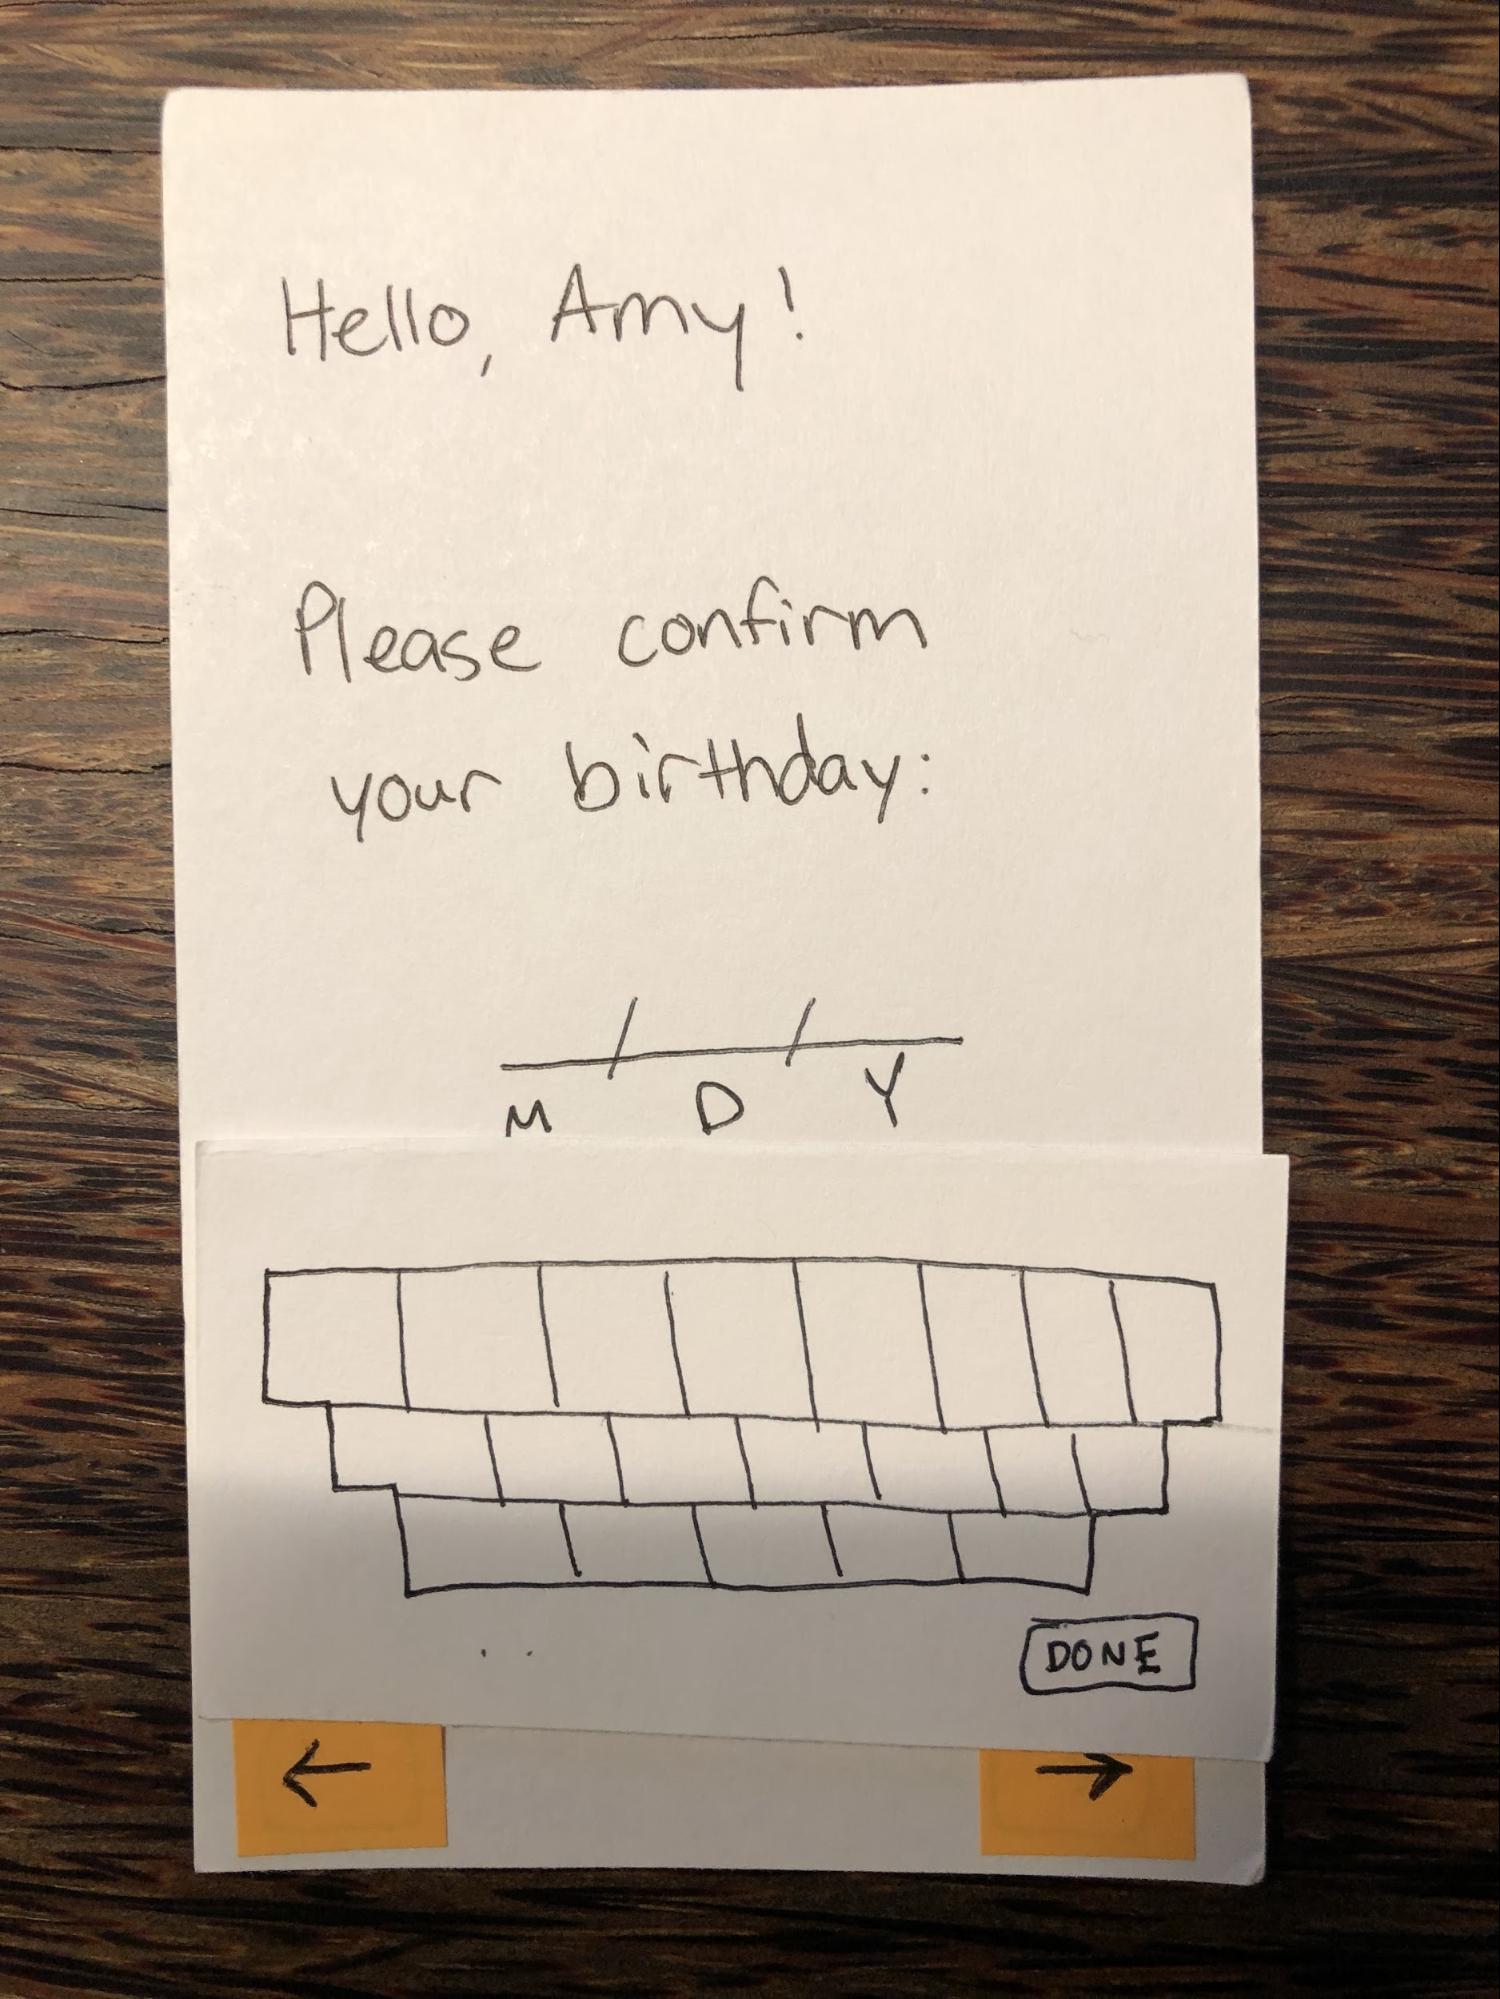 Hello, Amy!
Please confirm
your birthday:
/ /
M D Y
DONE
← →